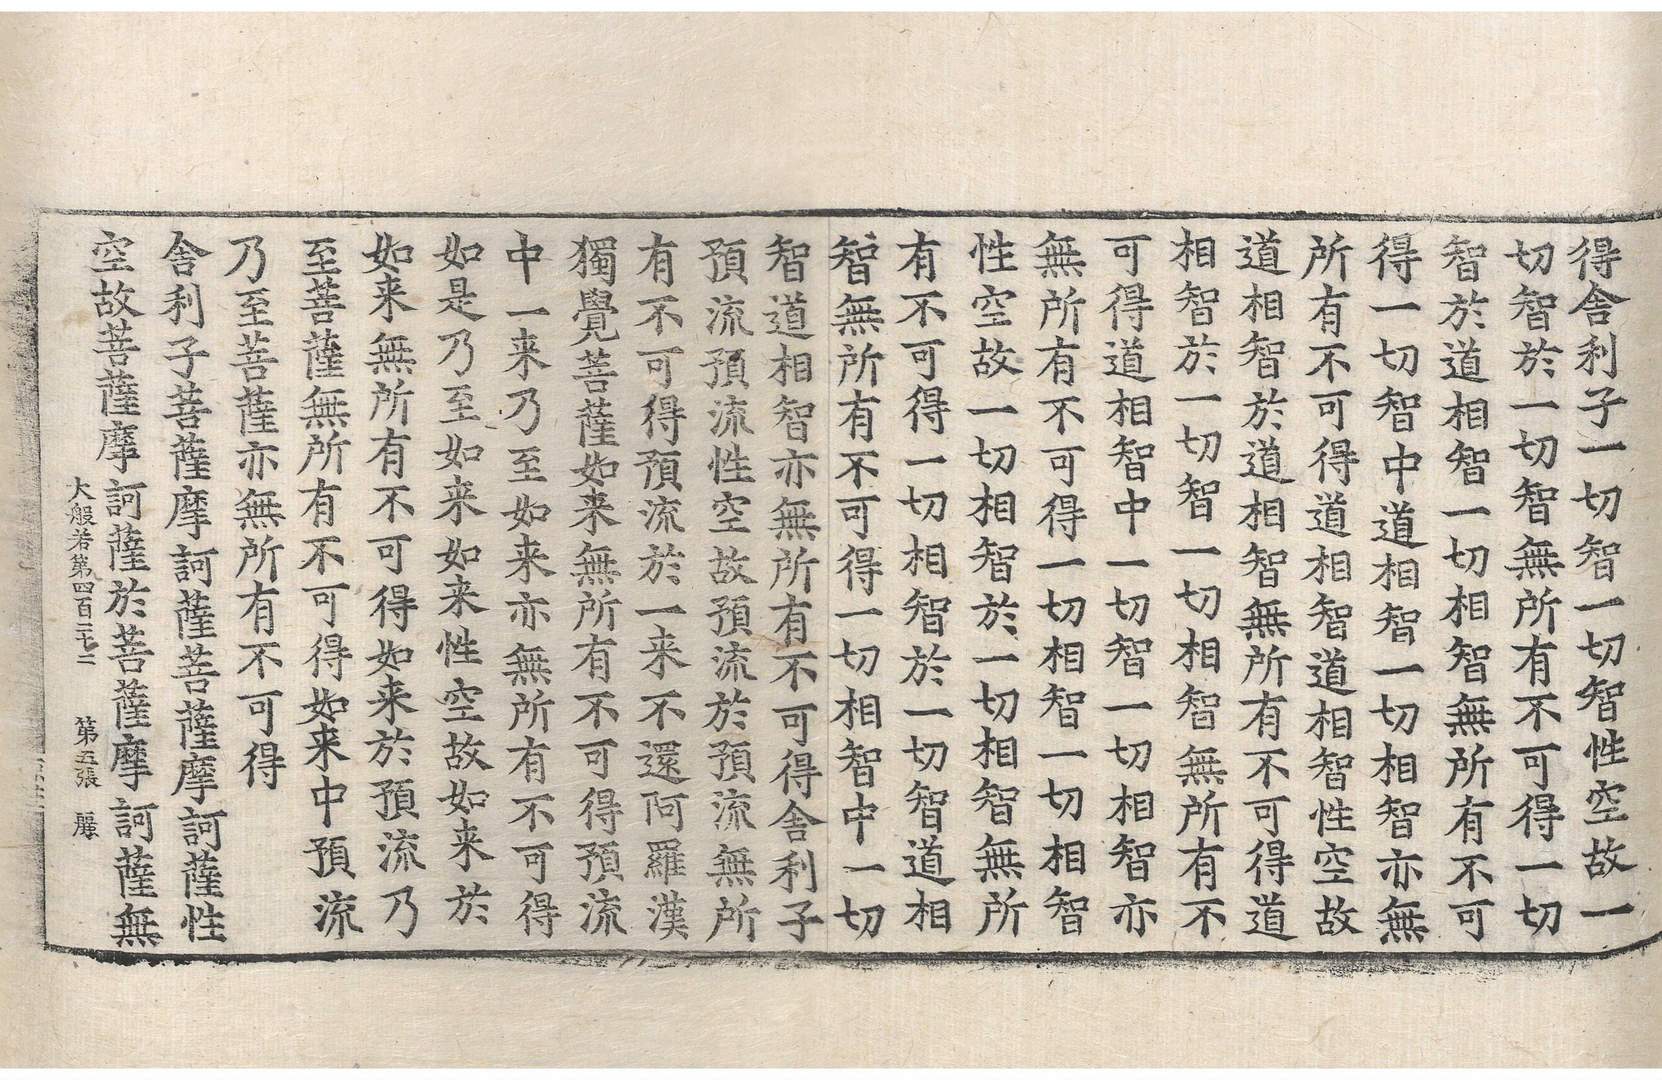 得舍利子一切智一切智性空故一
切智於一切智無所有不可得一切
智於道相智一切相智無所有不可
得一切智中道相智一切相智亦無
所有不可得道相智道相智性空故
道相智於道相智無所有不可得道
相智於一切智一切相智無所有不
可得道相智中一切智一切相智亦
無所有不可得一切相智一切相智
性空故一切相智於一切相智無所
有不可得一切相智於一切智道相
智無所有不可得一切相智中一切
智道相智亦無所有不可得舍利子
預流預流性空故預流於預流無所
有不可得預流於一来不還阿羅漢
獨覺菩薩如来無所有不可得預流
中一来乃至如来亦無所有不可得
如是乃至如来如来性空故如来於
如来無所有不可得如来於預流乃
至菩薩無所有不可得如来中預流
乃至菩薩亦無所有不可得
舍利子菩薩摩訶薩菩薩摩訶薩性
空故菩薩摩訶薩於菩薩摩訶薩無
大般若第四百二十二 第五張 麗